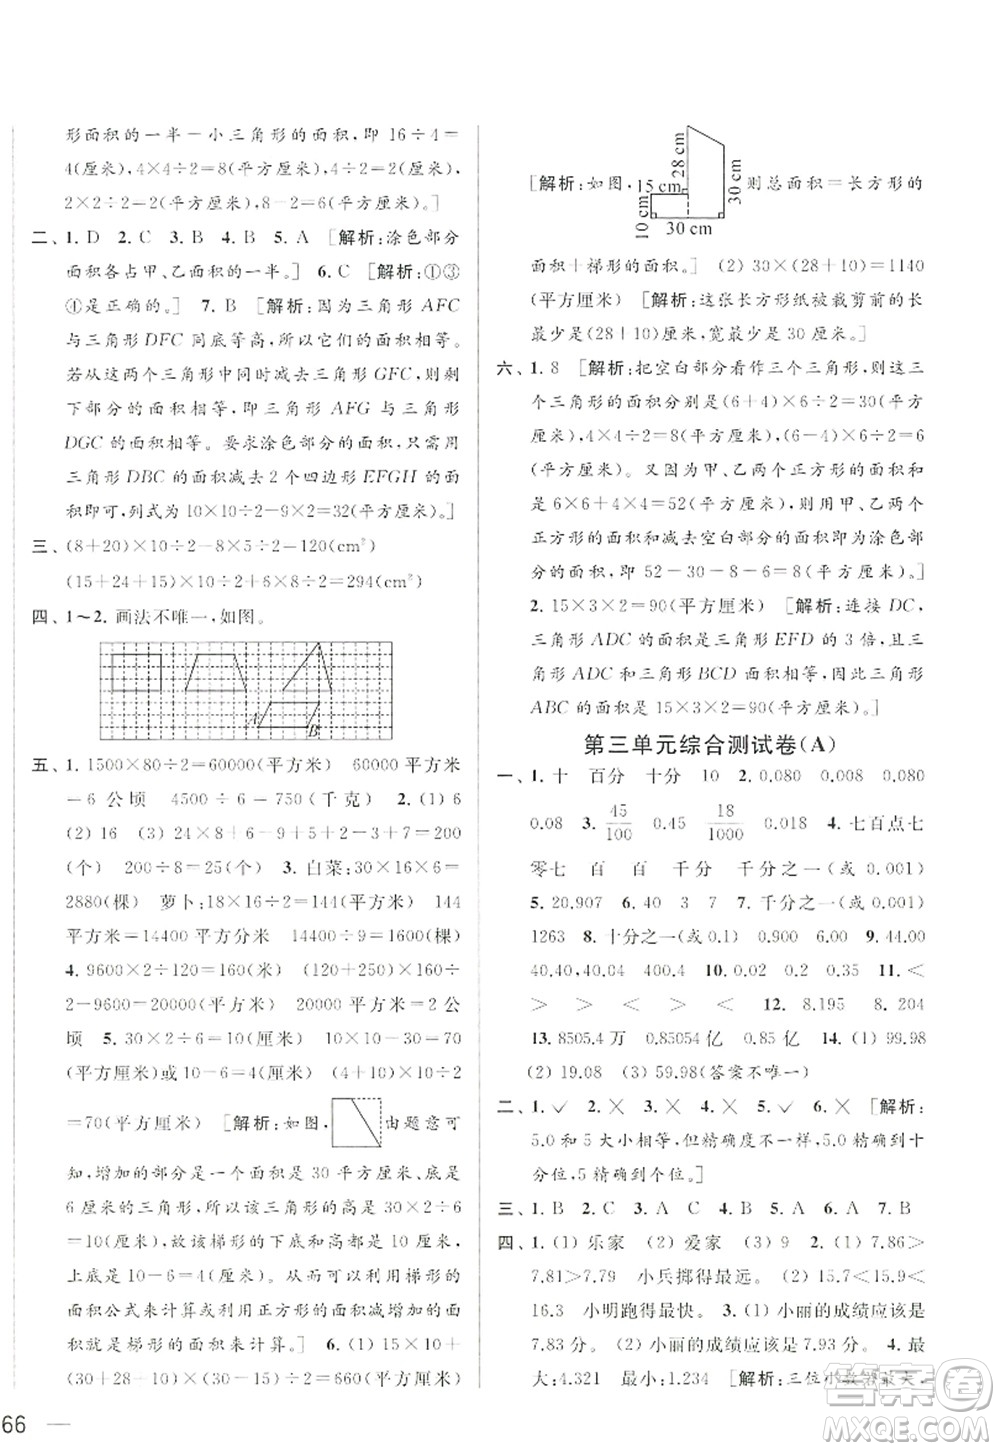 形面积的一半－小三角形的面积,即 16÷4＝
4(厘米),4×4÷2＝8(平方厘米),4÷2＝2(厘米),
2×2÷2＝2(平方厘米),8－2＝6(平方厘米)。]
二、1. D 2. C 3. B 4. B 5. A [解析:涂色部分
面积各占甲、乙面积的一半。] 6. C [解析:①③
④是正确的。] 7. B [解析:因为三角形 AFC
与三角形 DFC 同底等高,所以它们的面积相等。
若从这两个三角形中同时减去三角形 GFC,则剩
下部分的面积相等,即三角形 AFG 与三角形
DGC 的面积相等。要求涂色部分的面积,只需用
三角形 DBC 的面积减去2个四边形 EFGH 的面
积即可,列式为 10×10÷2－9×2＝32(平方厘米)。]
三、(8＋20)×10÷2－8×5÷2＝120(cm²)
(15＋24＋15)×10÷2＋6×8÷2＝294(cm²)
四、1～2. 画法不唯一,如图。
A
B
五、1. 1500×80÷2＝60000(平方米) 60000平方米
＝6公顷 4500÷6＝750(千克) 2. (1) 6
(2) 16 (3) 24×8＋6×8÷2－3＋7＝200
(个) 200÷8＝25(个) 3. 白菜:30×16×6＝
2880(棵) 萝卜:18×16÷2＝144(平方米) 144
平方米＝14400平方分米 14400÷9＝1600(棵)
4. 9600×2÷120＝160(米) (120＋160)×160÷
2－9600＝20000(平方米) 20000平方米＝2公
顷 5. 30×2÷6＝10(厘米) 10×10－30＝70
(平方厘米)或10－6＝4(厘米) (4＋10)×10÷2
＝70(平方厘米) [解析:如图, 由题意可
知,增加的部分是一个面积是30平方厘米、底是
6厘米的三角形,所以该三角形的高是30×2÷6
＝10(厘米),故该梯形的高和下底都是10厘米,
上底是10－6＝4(厘米),所以可利用梯形的
面积公式来计算或利用正方形的面积减增加的面
积就是梯形的面积来计算。] 6. (1) 10×15＋
(30＋28－10)×(30－15)÷2＝660(平方厘米)
[解析:如图,
15 cm
28 cm
10 cm
30 cm
30 cm
则总面积＝长方形的
面积＋梯形的面积。] (2) 30×(28＋10)＝1140
(平方厘米) [解析:这张长方形纸被裁剪前的长
最少是(28＋10)厘米,宽最少是30厘米。]
六、1. 8 [解析:把空白部分看作三个三角形,这三
个三角形的面积分别是(6＋4)×6÷2＝30(平方
厘米),4×4÷2＝8(平方厘米),(6－4)×6÷2＝
6(平方厘米)。又因为甲、乙两个正方形的面积和
是6×6＋4×4＝52(平方厘米),所以用甲、乙两个
正方形的面积减去空白部分的面积就是涂色部
分的面积,即52－30－8－6＝8(平方厘米)。]
2. 15×3×2＝90(平方厘米) [解析:连接 DC,
三角形 ADC 的面积是三角形 EFD 的3倍,且三
角形 ADC 和三角形 BCD 面积相等,所以三角形
ABC 的面积是15×3×2＝90(平方厘米)。]
第三单元综合测试卷(A)
一、1. 十 百分 十分 10 2. 0.080 0.008 0.080
0.08 3. 45/100 0.45 18/1000 0.018 4. 七百点七
零七 百 百 千分 千分之一(或0.001)
5. 20.907 6. 40 7. 千分之一(或0.001)
1263 8. 十分之一(或0.1) 0.900 6.00 9. 44.00
40.40,40.04 400.4 10. 0.02 0.2 0.35 11. ＜
＞ ＞ ＜ ＜ ＞ 12. 8.195 8.204
13. 8504.5万 0.85045亿 0.85亿 14. (1) 99.98
(2) 19.08 (3) 59.98(答案不唯一)
二、1. ✓ 2. × 3. × 4. × 5. ✓ 6. × [解析:
5.0和5大小相等,但精确度不一样,5.0精确到十
分位,5精确到个位。]
三、1. B 2. C 3. A C 4. B 5. A 6. A 7. B
四、1. (1) 乐家 (2) 爱家 (3) 9 2. (1) 7.86＞
7.81＞7.79 小兵掷得最远。 (2) 15.7＜15.9＜
16.3 小明跑得最快。 3. (1) 小丽的成绩应该是
7.83分。 (2) 小丽的成绩应该是7.93分。 4. 最
大:4.321 最小:1.234 [解析:三位小数要最大,
66
答案圈
MXQE.COM